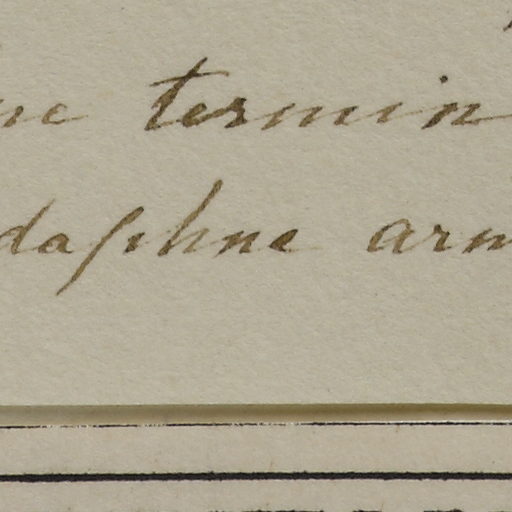 ne termin
daphne arm